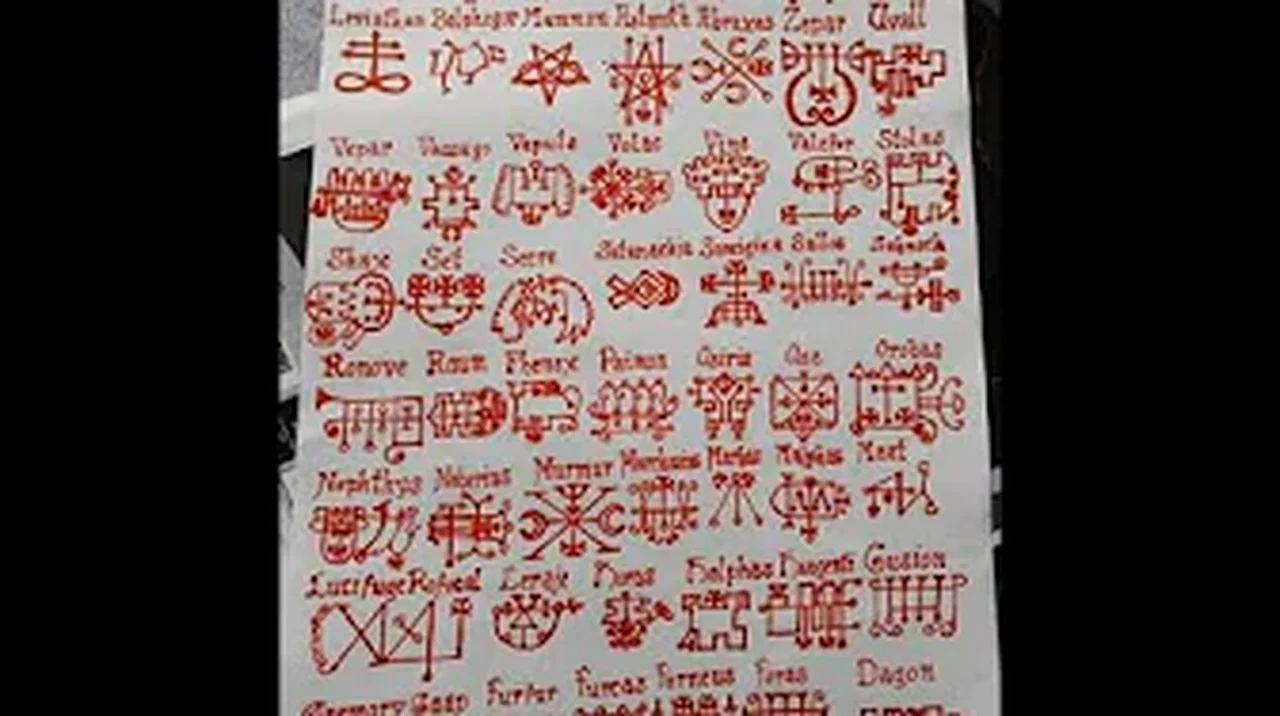 Leviathan Belphegor Mammon Abraxas Zepar Uvall
Vepar Vassago Vapula Volac Vine Valefor Stolas
Shax Set Seere Satanachia Sallos Sabnock
Ronove Raum Phenex Paimon Osiris Ose Orobas
Nephthys Naberius Murmur Marchosias Malphas Maat
Lucifuge Rofocal Leraje Halphas Haagenti Gusion
Gremory Gaap Furfur Furcas Forneus Foras Dagon